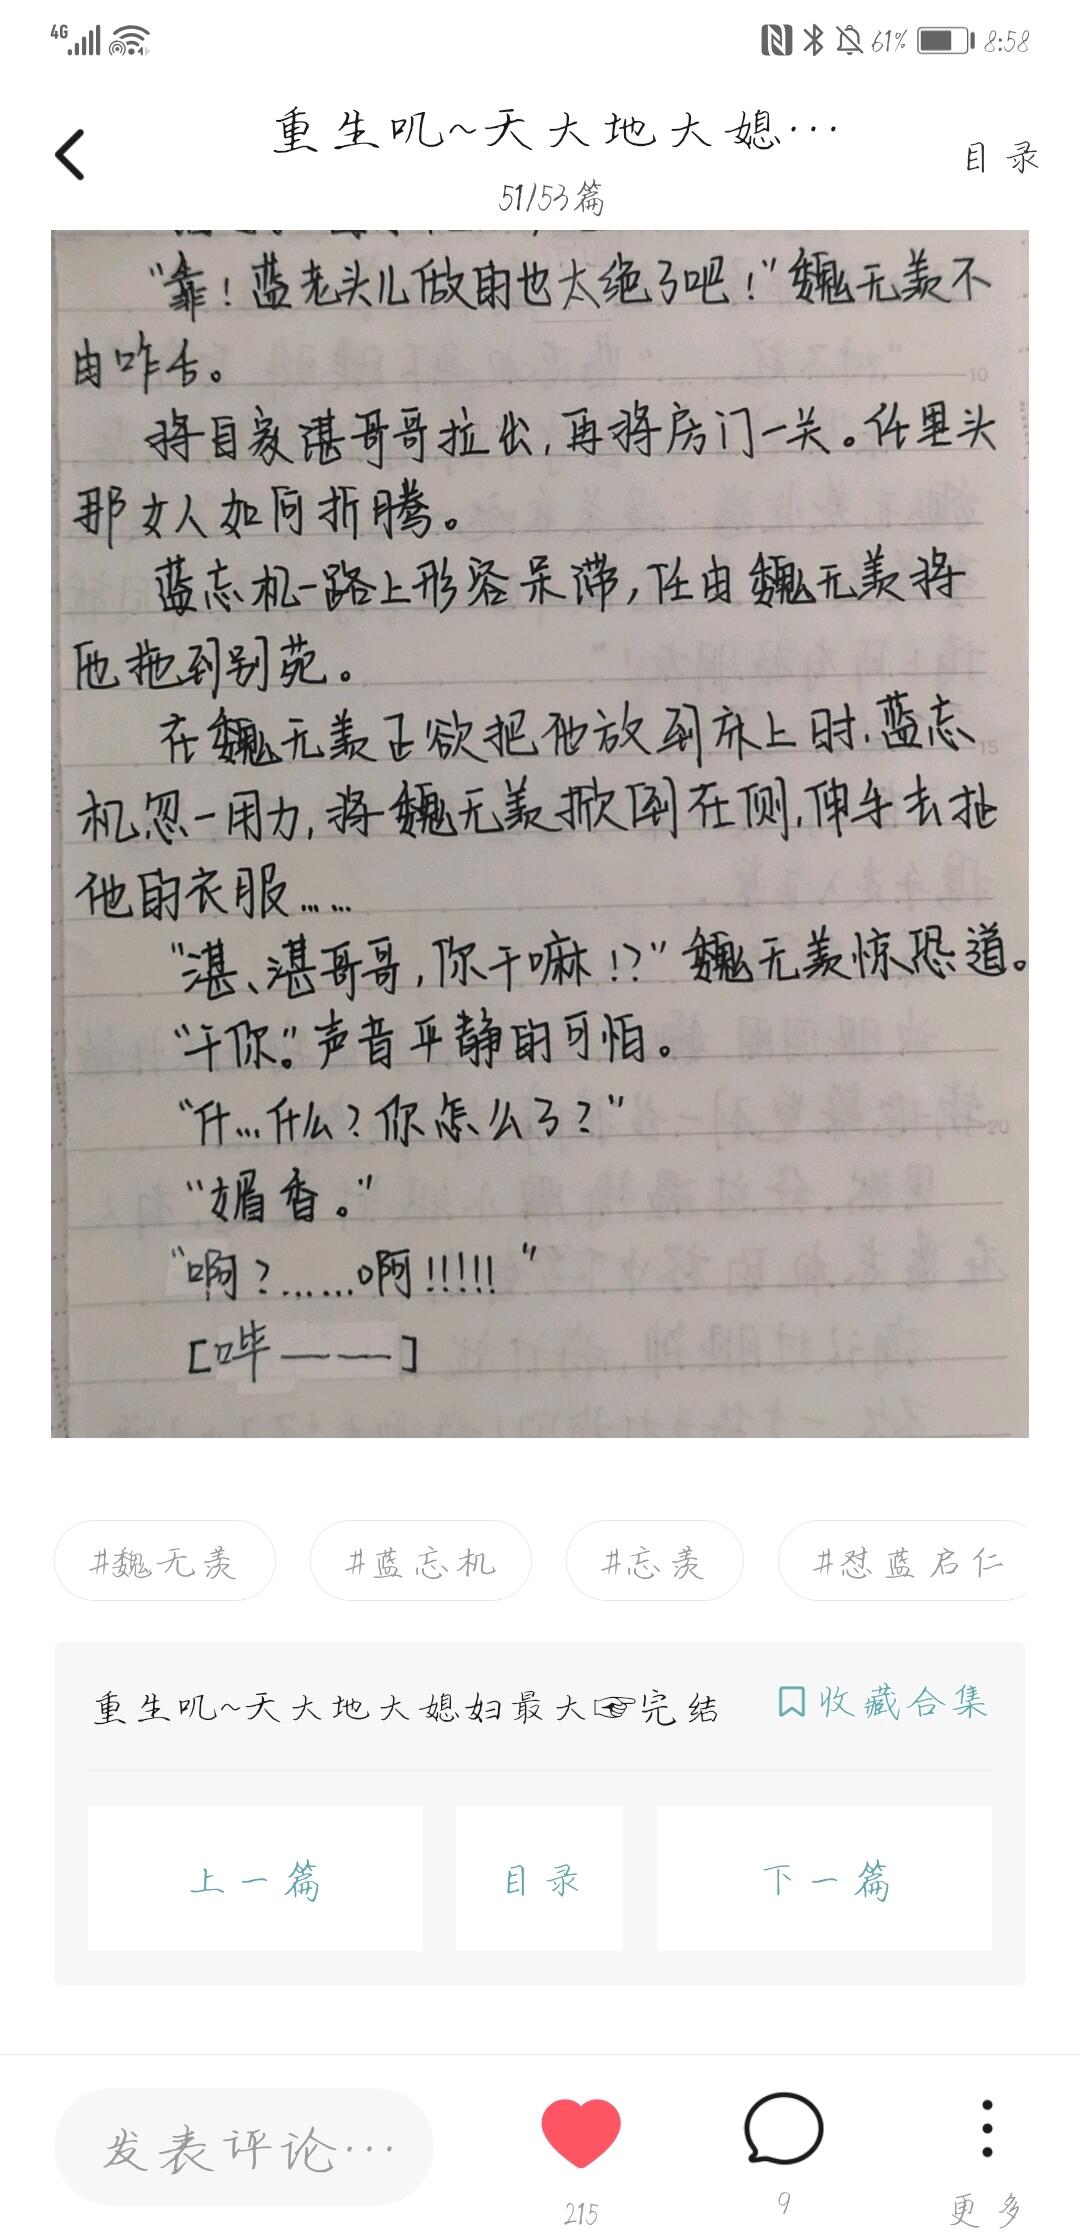 4G
61%
8:58
重生叽~天大地大媳…
目录
51/53篇
“靠！蓝老头儿做的也太绝了吧！”魏无羡不
由咋舌。
将自家湛哥哥拉出，再将房门一关。任里头
那女人如何折腾。
蓝忘机一路上形容呆滞，任由魏无羡将
他拖到别苑。
在魏无羡正欲把他放到床上时，蓝忘
机忽一用力，将魏无羡掀倒在侧，伸手去扯
他的衣服……
“湛、湛哥哥，你干嘛!?”魏无羡惊恐道。
“干你。”声音平静的可怕。
“什…什么？你怎么了？”
“媚香。”
“啊？……啊!!!!!”
[哔——]
#魏无羡
#蓝忘机
#忘羡
#怼蓝启仁
重生叽~天大地大媳妇最大☞完结
收藏合集
上一篇
目录
下一篇
发表评论…
215
9
更多